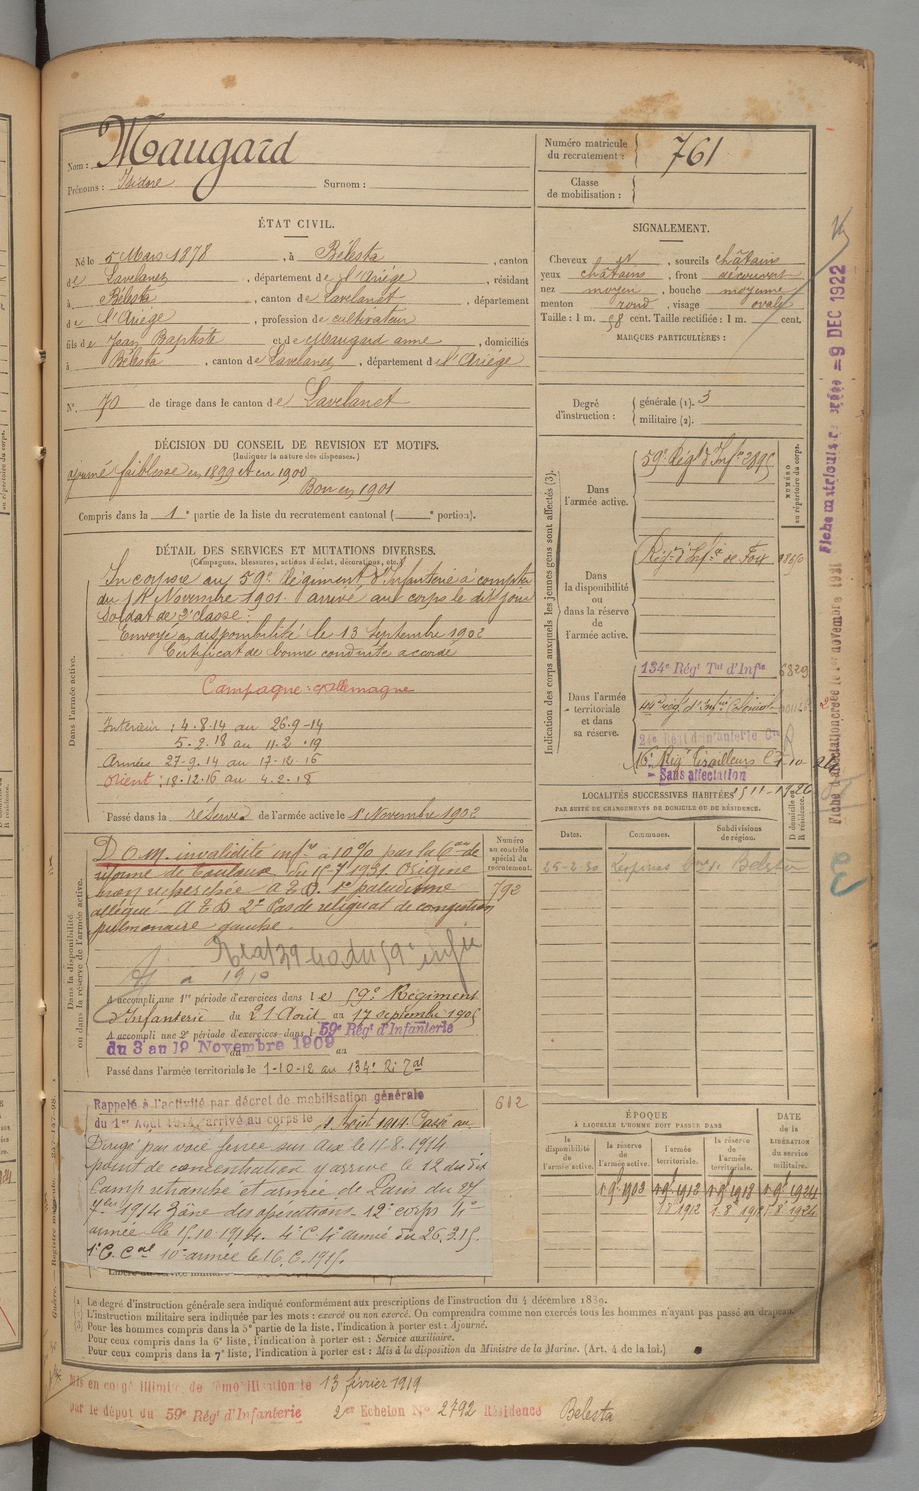 Nom : Maugard
Prénoms : Isidore Surnom :
Numéro matricule
du recrutement : 761
Classe
de mobilisation :
ÉTAT CIVIL.
Né le 5 Mars 1878, à Bélesta, canton
de Lavelanet, département de l'Ariège, résidant
à Bélesta, canton de Lavelanet, département
de l'Ariège, profession de cultivateur
fils de Jean Baptiste et de Maugard anne, domiciliés
à Bélesta, canton de Lavelanet, département de l'Ariège
N° 70 de tirage dans le canton de Lavelanet
SIGNALEMENT.
Cheveux, sourcils châtains
yeux châtains, front découvert
nez moyen, bouche moyenne
menton rond, visage ovale
Taille : 1 m. 58 cent. Taille rectifiée : 1 m. cent.
MARQUES PARTICULIÈRES :
Degré
d'instruction :
générale (1). 3
militaire (2).
DÉCISION DU CONSEIL DE REVISION ET MOTIFS.
(Indiquer la nature des dispenses.)
ajourné faiblesse en 1899 et en 1900
Bon en 1901
Compris dans la 1e partie de la liste du recrutement cantonal ( e portion).
DÉTAIL DES SERVICES ET MUTATIONS DIVERSES.
(Campagnes, blessures, actions d'éclat, décorations, etc.)
Dans l'armée active.
Incorporé au 59e Régiment d'Infanterie à compter
du 14 Novembre 1901. arrivé au corps le dit jour
Soldat de 2e classe.
Envoyé en disponibilité le 13 Septembre 1902
Certificat de bonne conduite accordé
Campagne : c/allemagne
Intérieur : 4-8-14 au 26-9-14
5-2-18 au 11-2-19
Armées 27-9-14 au 17-12-16
Orient : 18-12-16 au 4-2-18
Passé dans la réserve de l'armée active le 1er Novembre 1902
Indication des corps auxquels les jeunes gens sont affectés (3).
NUMÉRO
au répertoire du corps.
Dans
l'armée active.
59e Régt d'Infie
Dans
la disponibilité
ou
dans la réserve
de
l'armée active.
Régt d'Infie de Foix
Dans l'armée
territoriale
et dans
sa réserve.
134e Régt Tal d'Infie 6829
24e Régt d'Infanterie Cle
16e Régt Tirailleurs
Sans affectation
LOCALITÉS SUCCESSIVES HABITÉES
PAR SUITE DE CHANGEMENTS DE DOMICILE OU DE RÉSIDENCE.
Dates. Communes. Subdivisions
de région. D domicile ou
R résidence.
Belesta
Dans la disponibilité
ou dans la réserve de l'armée active.
Numéro
au contrôle
spécial du
recrutement.
792
D.O.M. invalidité infre à 10% par la Con de
réforme de Toulouse du 15-7-1931. Origine
non recherchée A.E.D. 1° paludisme
allégué A.E.D 2° Pas de reliquat de congestion
pulmonaire gauche.
A accompli une 1re période d'exercices dans le 59e Régiment
d'Infanterie du 21 Août au 17 septembre 1905
A accompli une 2e période d'exercices dans l 59e Régt d'Infanterie
du 3 au 19 Novembre 1909
du au
Passé dans l'armée territoriale le 1-10-12 au 134e Ri Tal
Rappelé à l'activité par décret de mobilisation générale
du 1er Août 1914, arrivé au corps le 4 Août 1914. Passé au 612
Dirigé par voie ferrée sur Aix le 11-8-1914
point de concentration y arrive le 12 du dit
Camp retranché et armée de Paris du 27
7bre 1914 Zône des opérations 12e corps 4e
armée le 15.10.1914. 4e C. 4e armée du 26.3.15.
1e C. Cal 10e armée le 16.6.1915.
ÉPOQUE
À LAQUELLE L'HOMME DOIT PASSER DANS
DATE
de la
LIBÉRATION
du service
militaire.
la
disponibilité
de
l'armée active.
la réserve
de
l'armée active.
l'armée
territoriale.
la réserve
de
l'armée
territoriale.
1.9.1903 1.9.1912 1.9.1918 1.9.1924
1.8.1912 1-8-1918 1.8.1924
(1) Le degré d'instruction générale sera indiqué conformément aux prescriptions de l'instruction du 4 décembre 1889.
(2) L'instruction militaire sera indiquée par les mots : exercé ou non exercé. On comprendra comme non exercés tous les hommes n'ayant pas passé au drapeau.
(3) Pour les hommes compris dans la 5e partie de la liste, l'indication à porter est : Ajourné.
Pour ceux compris dans la 6e liste, l'indication à porter est : Service auxiliaire.
Pour ceux compris dans la 7e liste, l'indication à porter est : Mis à la disposition du Ministre de la Marine. (Art. 4 de la loi.)
Mis en congé illimité de démobilisation le 13 février 1919
par le dépôt du 59e Régt d'Infanterie 2er Echelon No 2792 Résidence Belesta
Fiche matricule créée = 9 DEC 1922
Fiche d'affectation créée le 1er novembre 1931